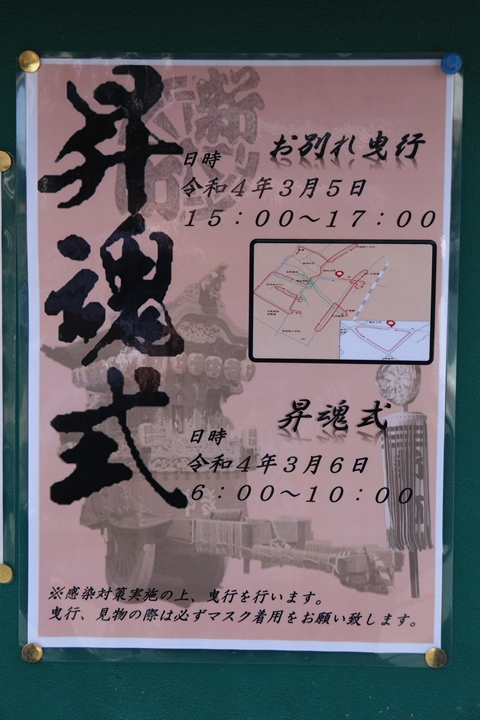 昇魂式
お別れ曳行
日時
令和4年3月5日
15:00～17:00
昇魂式
日時
令和4年3月6日
6:00～10:00
※感染対策実施の上、曳行を行います。
曳行、見物の際は必ずマスク着用をお願い致します。